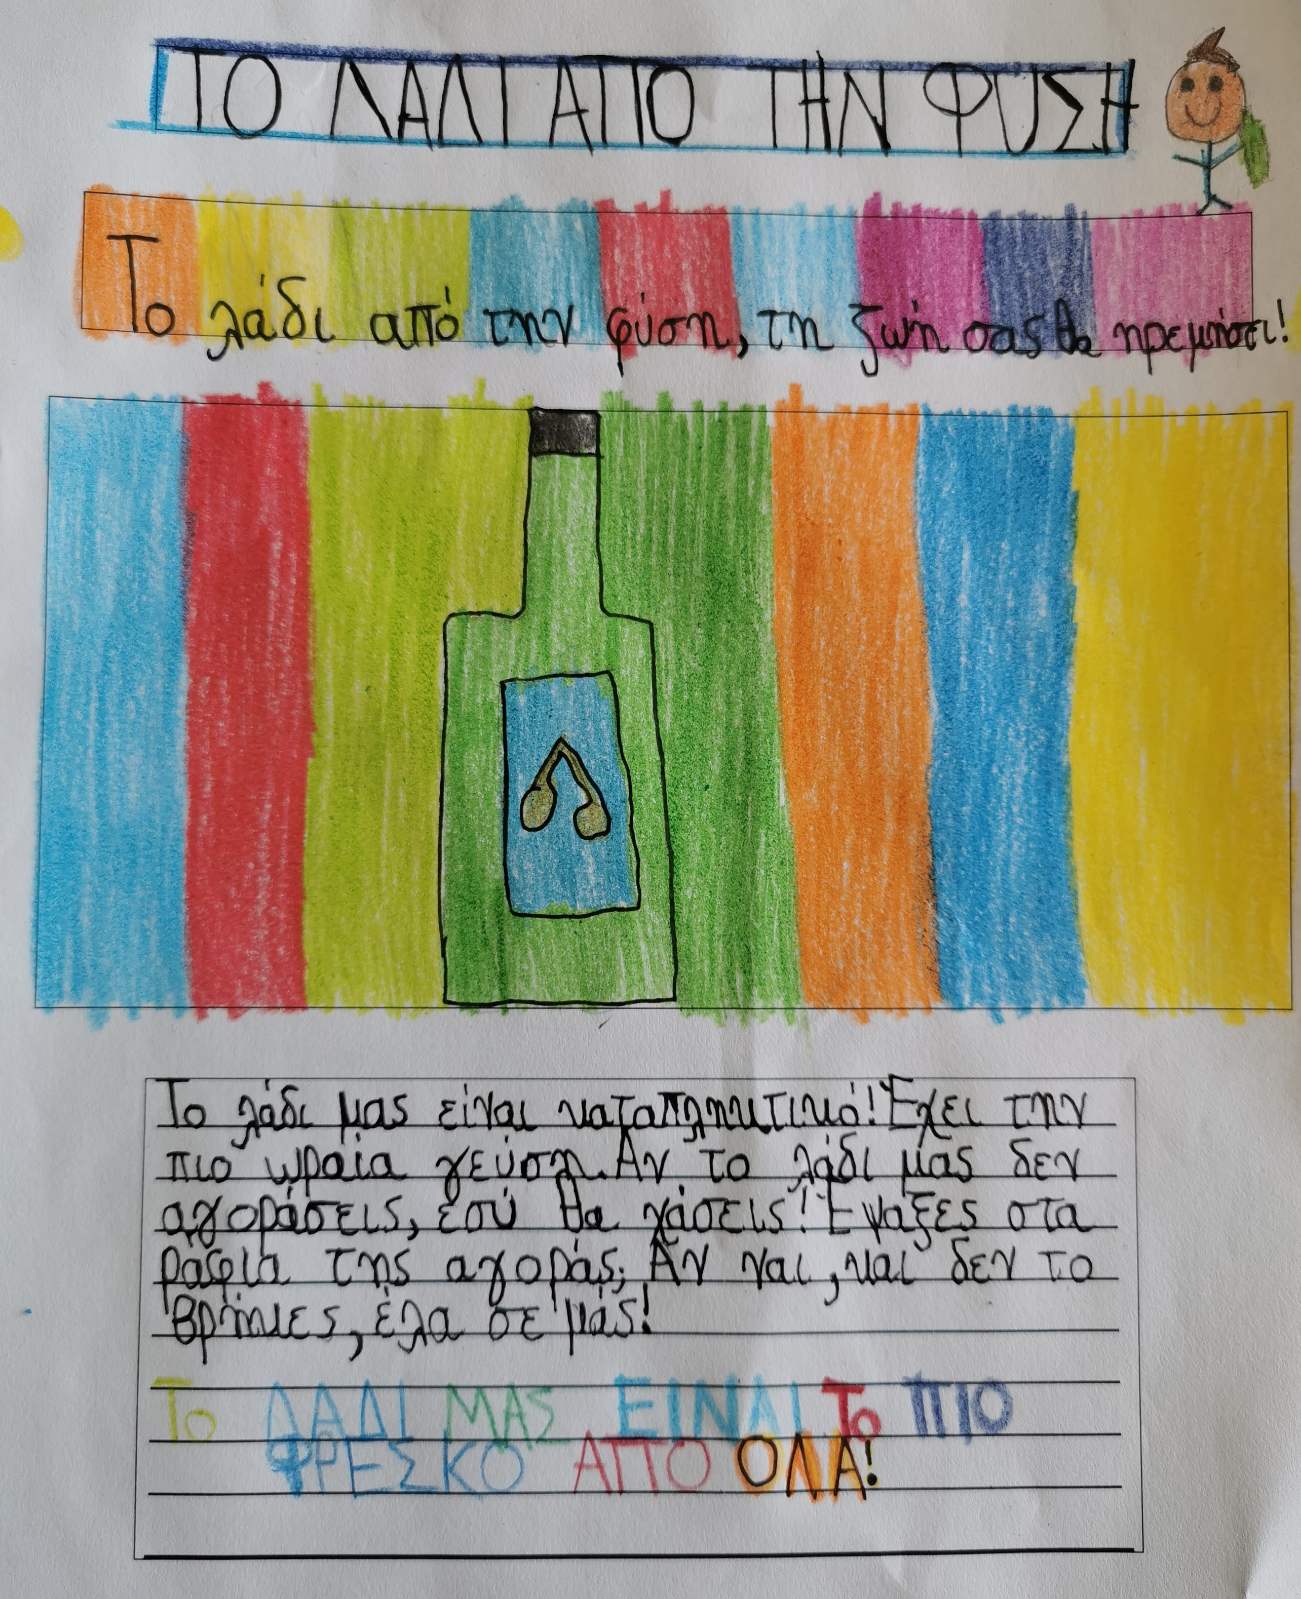 ΤΟ ΛΑΔΙ ΑΠΟ ΤΗΝ ΦΥΣΗ
Το λάδι από την φύση, τη ζωή σας θα ηρεμήσει!
Το λάδι μας είναι καταπληκτικό! Έχει την
πιο ωραία γεύση. Αν το λάδι μας δεν
αγοράσεις, εσύ θα χάσεις! Έψαξες στα
ράφια της αγοράς; Αν ναι, και δεν το
βρήκες, έλα σε μάς!
Το ΛΑΔΙ ΜΑΣ ΕΙΝΑΙ Το ΠΙΟ
ΦΡΕΣΚΟ ΑΠΟ ΟΛΑ!